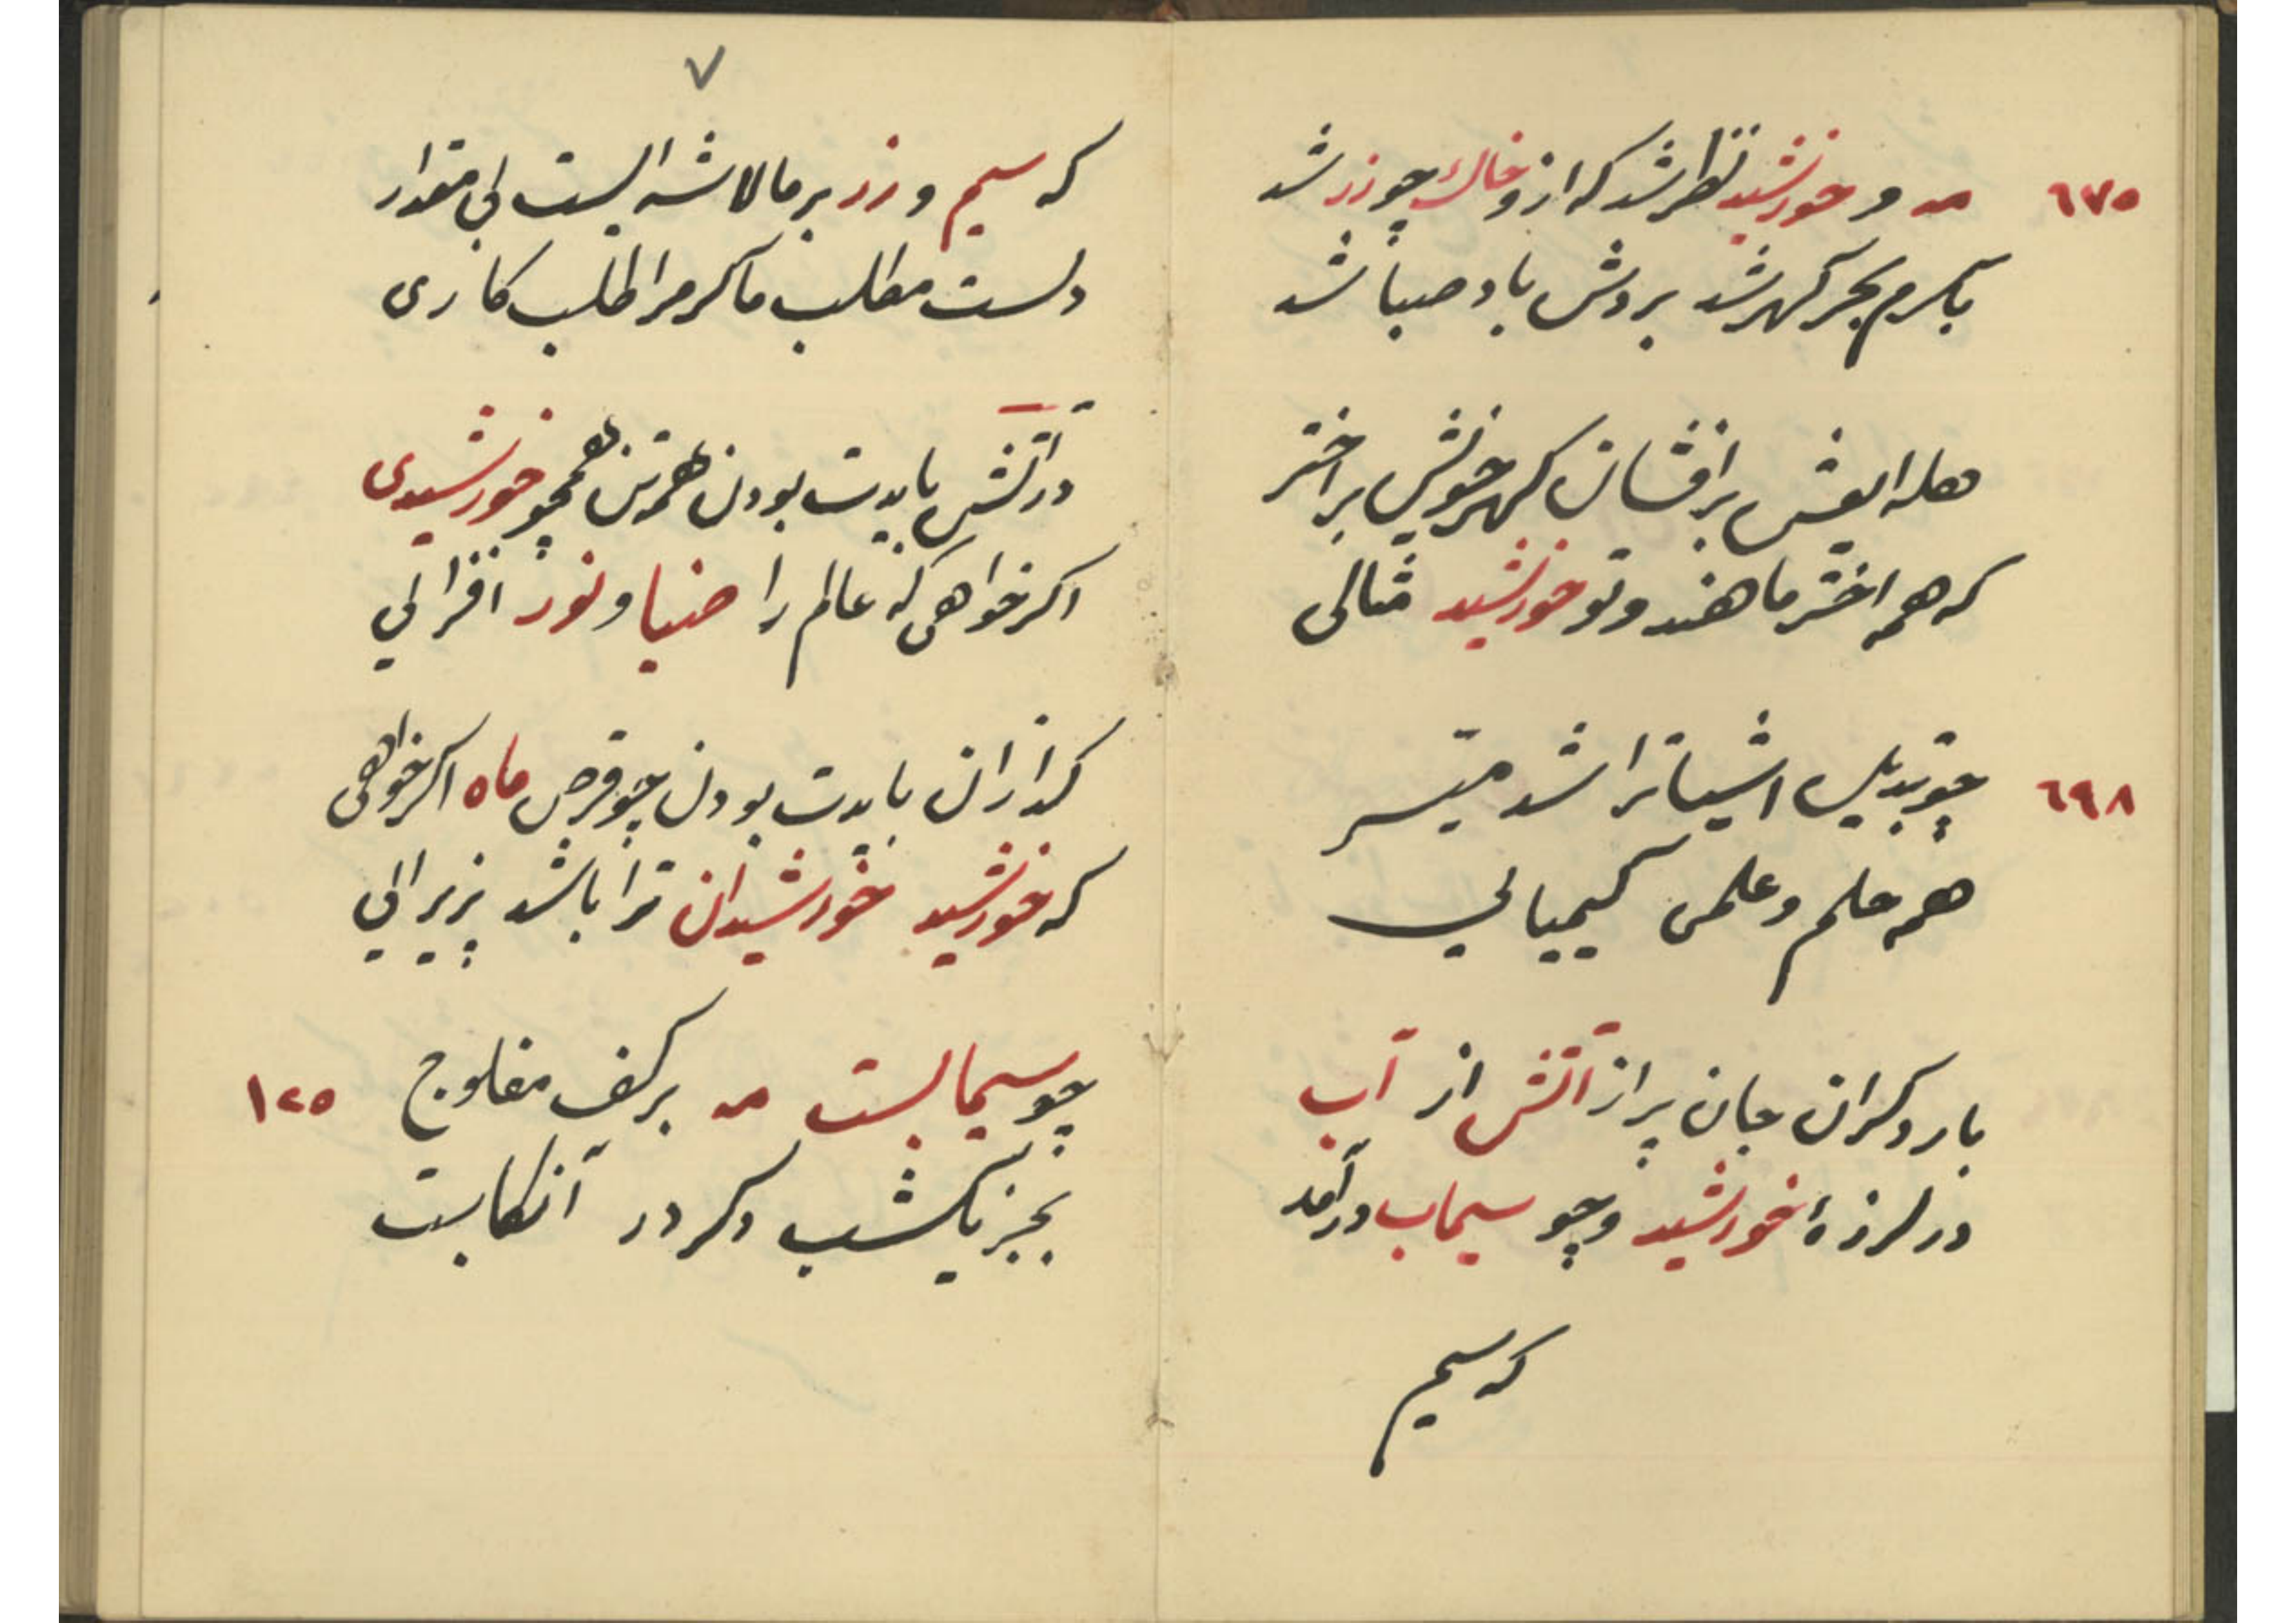 ٦٧٥
مه و خورشید نظر شد که ازو خاک چو زر شد
بکرم بحر گهر شد بروش باد صبا شد
هله ای عشق برافشان گهر خویش بر اختر
که همه اختر ماهند و تو خورشید مثالی
٦٩٨
چو تبدیل اشیا ترا شد میسر
همه حلم و علمی کیمیائی
بار دگر آن جان پر از آتش از آب
در لرزهٔ خورشید و چو سیماب درآمد
که سیم
٧
که سیم و زر بر ما لاشه ایست بی مقدار
دلست مطلب ما گر مرا طلب کاری
در آتش بایدت بودن همه تن همچو خورشیدی
اگر خواهی که عالم را ضیا و نور افزائی
گدازان بایدت بودن چو قرص ماه اگر خواهی
که خورشید خورشیدان ترا باشد پزیرائی
چو سیمابست مه بر کف مفلوج
١٢٥
بجز یکشب دگر در آنکابست